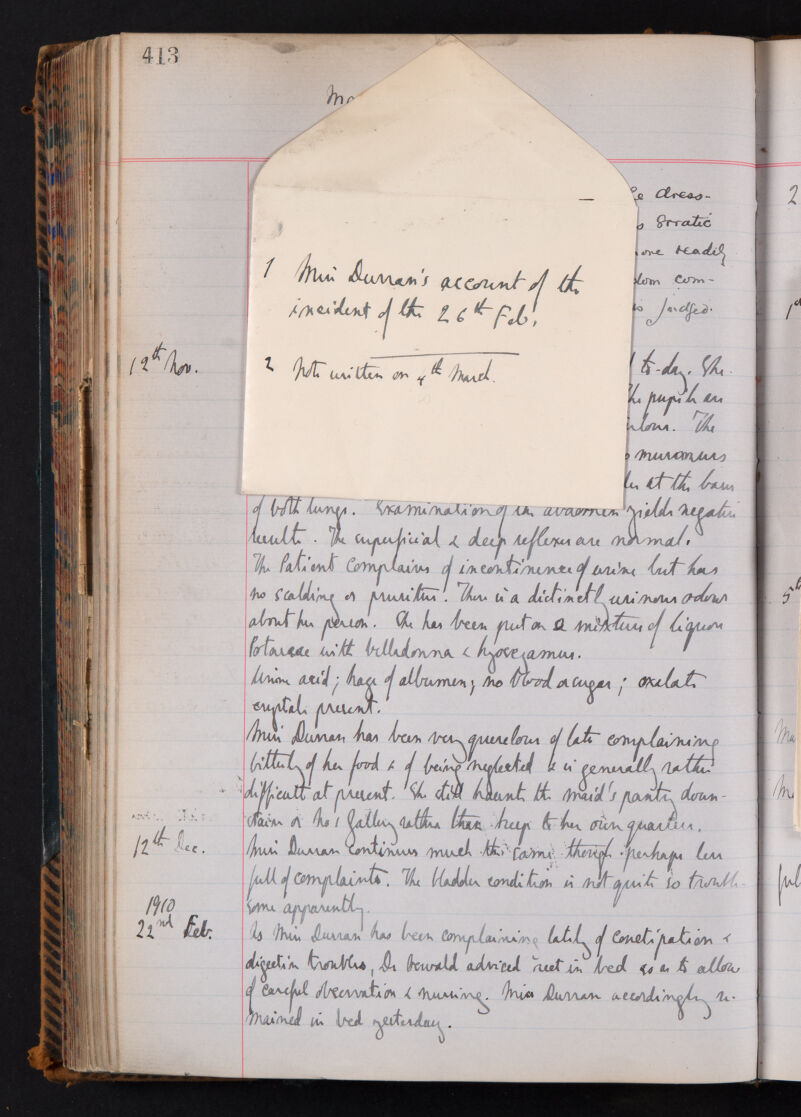 413
1 Miss Durran's account of the
incident of the 26th Feb.
2 Note written on 4th March.
dress-
Erratic
readily
com-
judged.
12th Nov.
to-day. She
The pupils are
The
murmurs
at the bases
of both lungs. Examination of the abdomen yields negative
results. The superficial & deep reflexes are normal.
The Patient complains of incontinence of urine but has
no scalding or pruritus. There is a distinctly urinous odour
about her person. She has been put on a mixture of liquor
Potassae with belladonna & hyoscyamus.
Urine acid; trace of albumen; no blood or sugar; oxalate
crystals present.
Miss Durran has been very querelous of late complaining
bitterly of her food & of being neglected & is generally rather
difficult at present. She still haunts the maid's pantry down-
stairs or No. 1 Gallery rather than keep to her own quarters.
12th Dec.
Miss Durran continues much the same though perhaps less
full of complaints. The bladder condition is not quite so trouble-
some apparently.
1910
22nd Feb.
As Miss Durran has been complaining lately of constipation &
digestive troubles, Dr advised rest in bed so as to allow
of careful observation & nursing. Miss Durran accordingly re-
mained in bed yesterday.